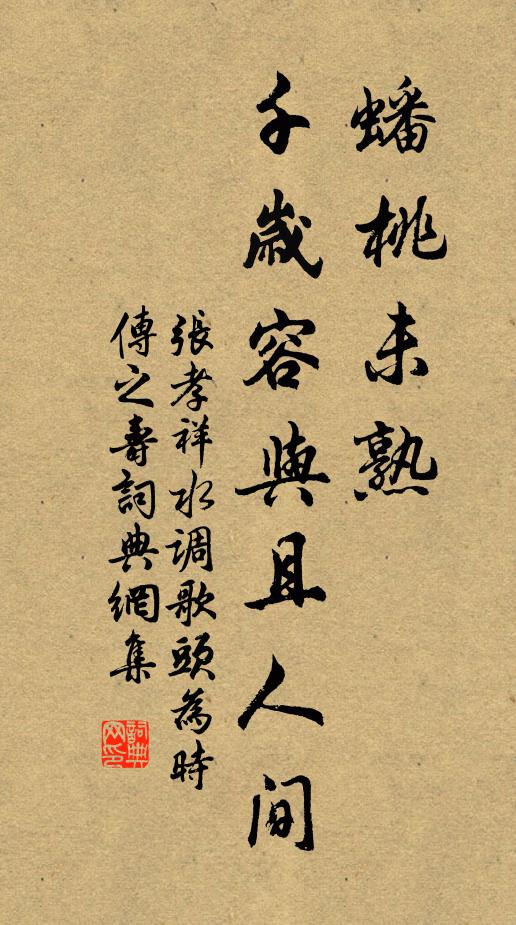 蟠桃未熟
千歲容與且人间
張孝祥水调歌頭為時
傳之壽詞典網集
詞典网印